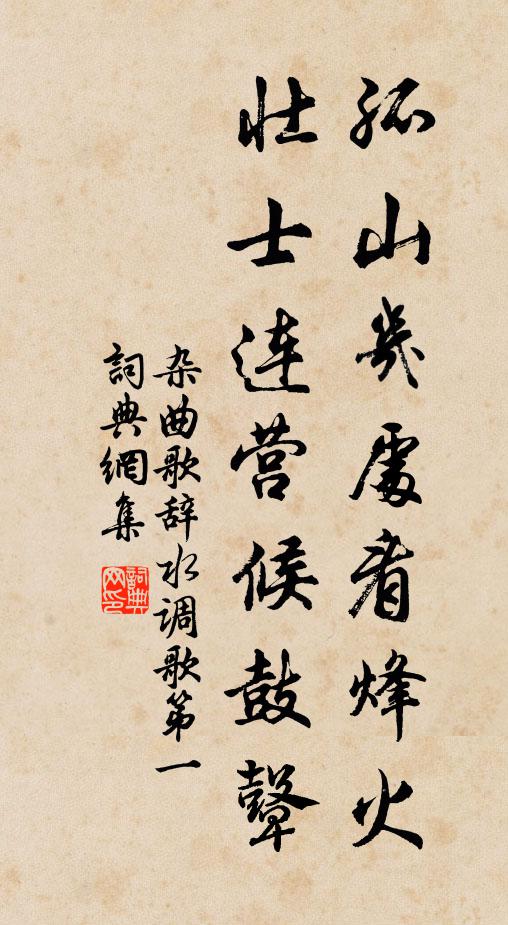 孤山幾處看烽火
壮士連营候鼓聲
杂曲歌辞水调歌第一
詞典網集
詞典网印